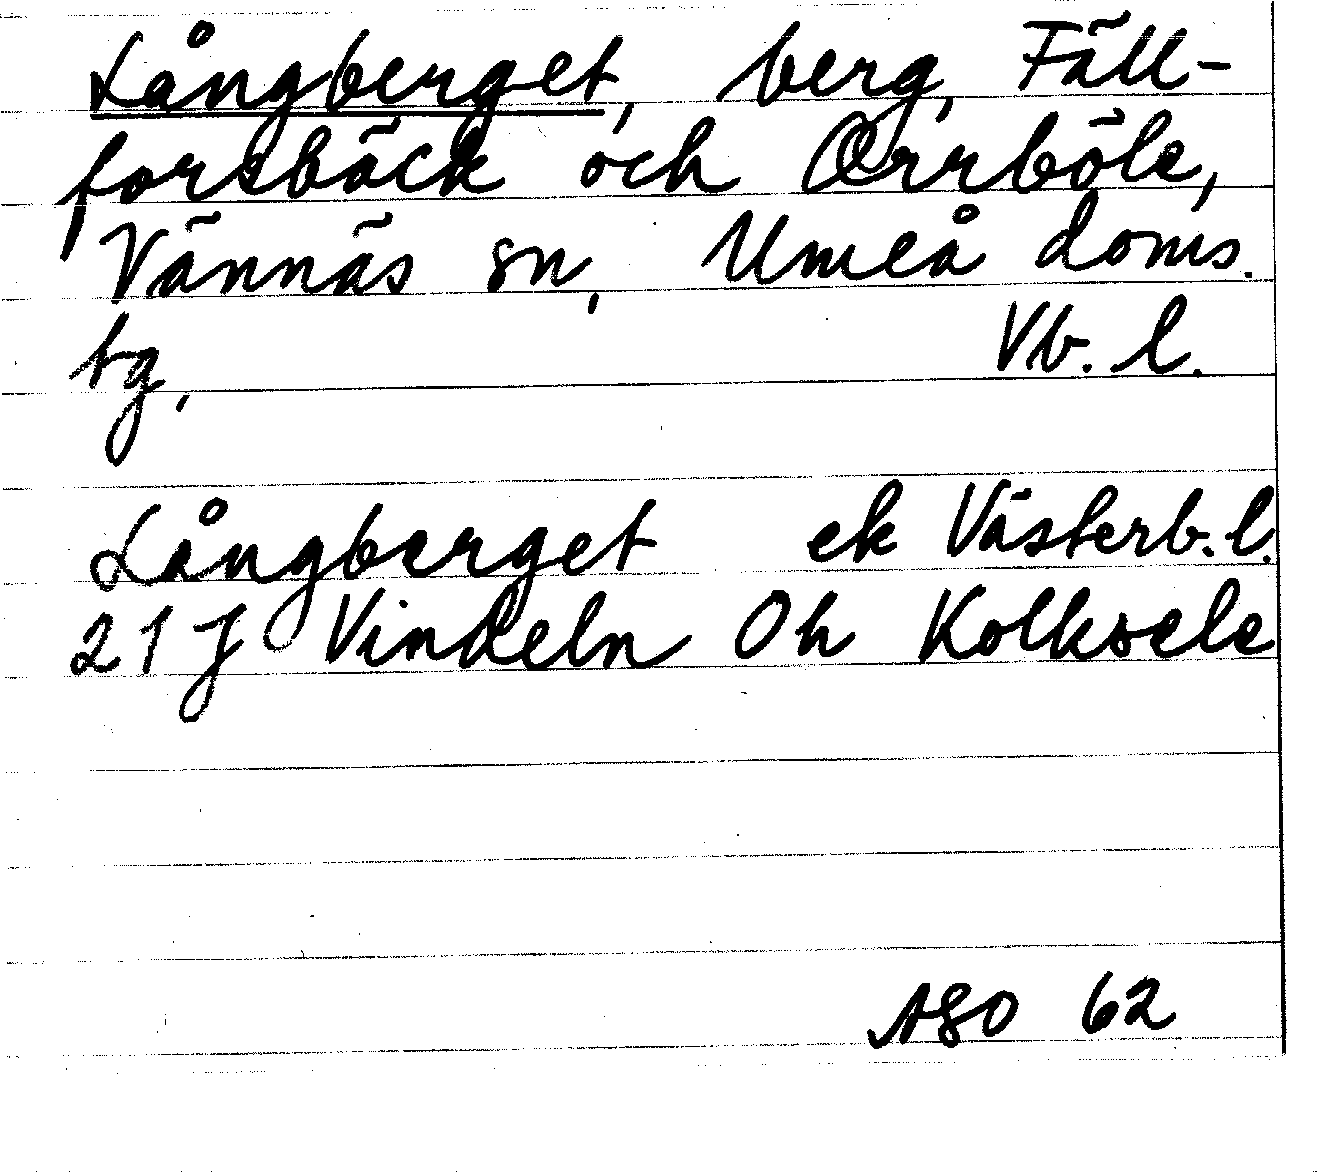 Långberget, berg, Fäll-
forsbäck och Orrböle,
Vännäs sn, Umeå doms.
tg, Vb. l.
Långberget ek Västerb. l.
21 J Vindeln Oh Kolksele
ASO 62